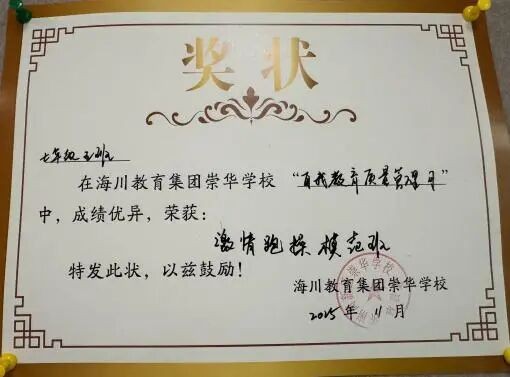 奖状
七年级五班
在海川教育集团崇华学校“自我教育质量管理月”
中，成绩优异，荣获：
激情跑操模范班
特发此状，以兹鼓励！
海川教育集团崇华学校
2015年11月